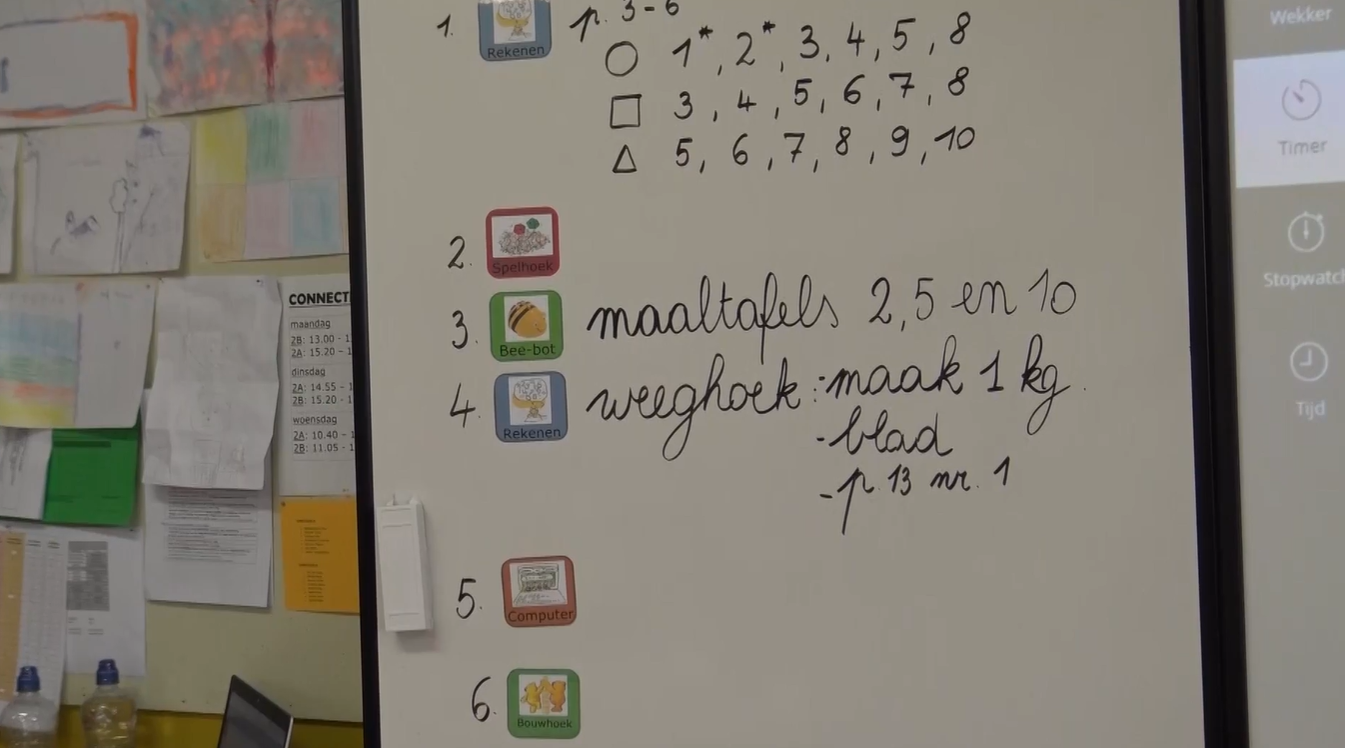 1. Rekenen p. 3-6
1*, 2*, 3, 4, 5, 8
3, 4, 5, 6, 7, 8
5, 6, 7, 8, 9, 10
2. Spelhoek
3. Bee-bot maaltafels 2, 5 en 10
4. Rekenen weeghoek: -maak 1 kg.
-blad
-p. 13 nr. 1
5. Computer
6. Bouwhoek
CONNECT
maandag
2B: 13.00 - 1
2A: 15.20 - 1
dinsdag
2A: 14.55 - 1
2B: 15.20 - 1
woensdag
2A: 10.40 - 1
2B: 11.05 - 1
Wekker
Timer
Stopwatch
Tijd